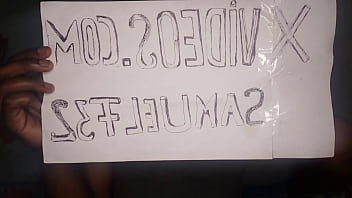 X VIDEOS.COM
SAMUELF32